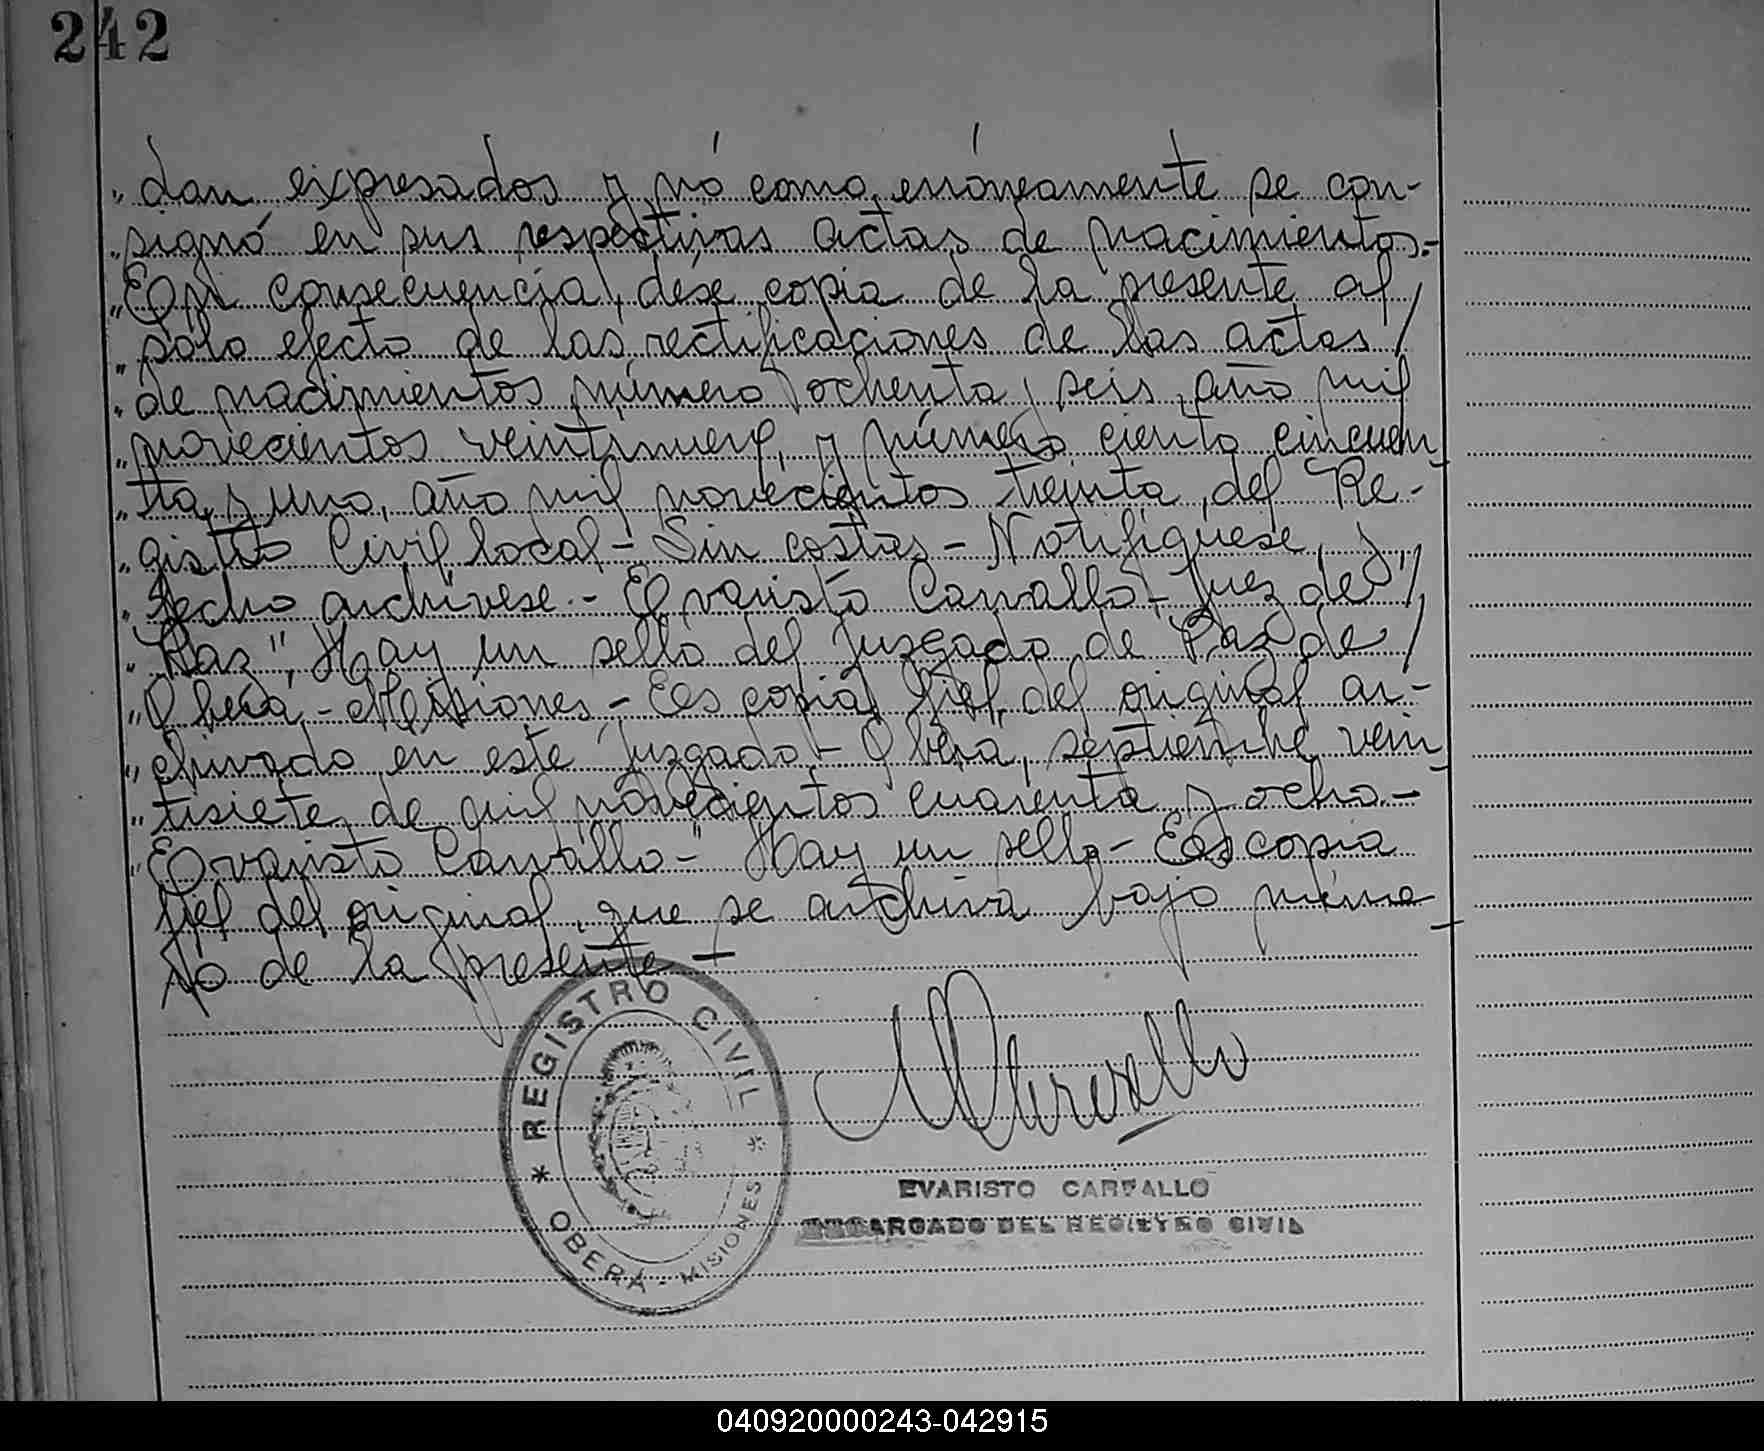 242
„ dan expresados y nó como erróneamente se con-
„ signó en sus respectivas actas de nacimientos.-
„ En consecuencia, dése copia de la presente al
„ solo efecto de las rectificaciones de las actas /
„ de nacimientos número ochenta y seis, año mil
„ novecientos veintinueve, y número ciento cincuen
„ ta y uno, año mil novecientos treinta, del Re-
„ gistro Civil local - Sin costas - Notifíquese, y
„ fecho archívese.- Evaristo Carvallo - Juez de //
„ Paz", Hay un sello del Juzgado de Paz de /
„ Oberá - Misiones - Es copia fiel del original ar-
„ chivado en este Juzgado - Oberá, septiembre vein
„ tisiete de mil novecientos cuarenta y ocho.-
„ Evaristo Carvallo-" Hay un sello - Es copia
fiel del original, que se archiva bajo núme-
ro de la presente -
* REGISTRO CIVIL *
OBERÁ - MISIONES
EVARISTO CARVALLO
ENCARGADO DEL REGISTRO CIVIL
040920000243-042915